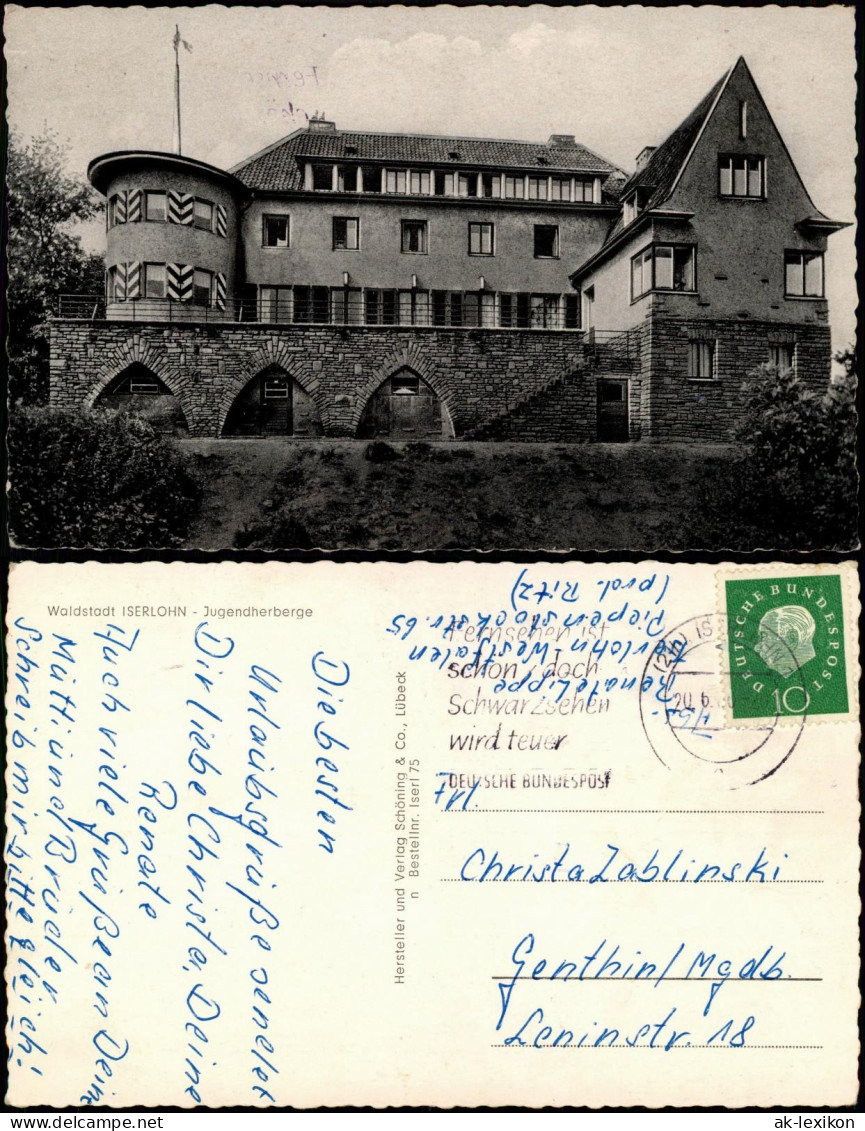 Waldstadt ISERLOHN - Jugendherberge
Die besten
Urlaubsgrüße sendet
Dir liebe Christa, Deine
Renate
Auch viele Grüße an Deine
Mutti und Brüder
Schreib mir bitte gleich!
Hersteller und Verlag Schöning & Co., Lübeck
n Bestellnr. Iserl 75
Renate Lippe
Iserlohn-Westfalen
Piepenstockstr. 65
(prol. Ritz)
Fernsehen ist
schön, doch
Schwarzsehen
wird teuer
DEUTSCHE BUNDESPOST
DEUTSCHE BUNDESPOST
10
Christa Zablinski
Genthin/Mgdb.
Leninstr. 18
ak-lexikon